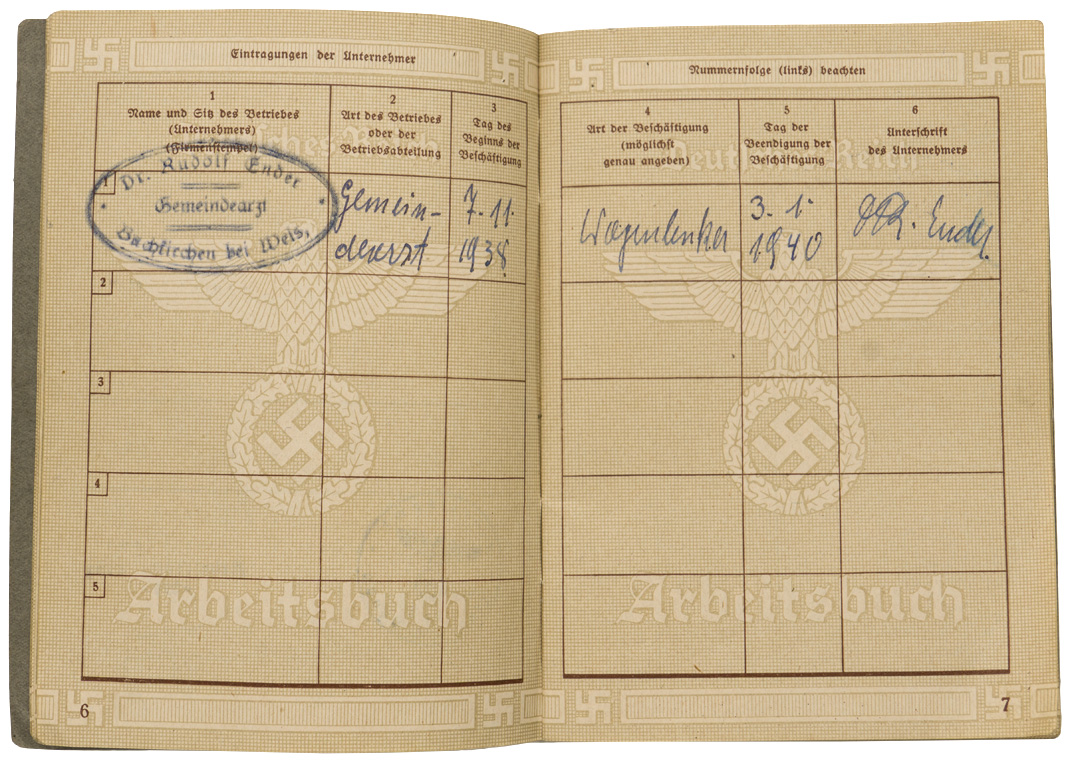 Eintragungen der Unternehmer
1
Name und Sitz des Betriebes
(Unternehmers)
(Firmenstempel)
2
Art des Betriebes
oder der
Betriebsabteilung
3
Tag des
Beginns der
Beschäftigung
1
Dr. Rudolf Ender
Gemeindearzt
Bachkirchen bei Wels,
Gemein-
dearzt
7.11.
1938
2
3
4
5
Arbeitsbuch
6
Nummernfolge (links) beachten
4
Art der Beschäftigung
(möglichst
genau angeben)
5
Tag der
Beendigung der
Beschäftigung
6
Unterschrift
des Unternehmers
Deutsches Reich
Wagenlenker
3. 1.
1940
Ender
Arbeitsbuch
7